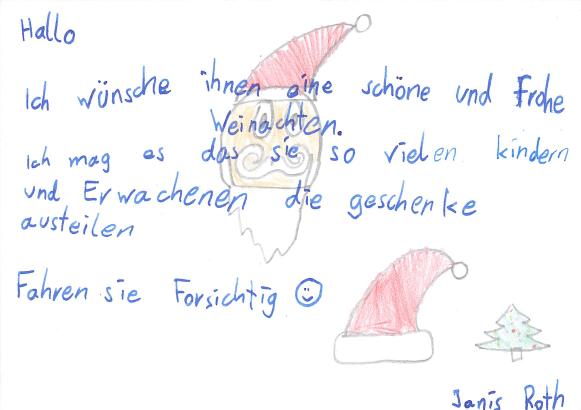 Hallo
Ich wünsche ihnen eine schöne und Frohe
Weinachten.
Ich mag es das sie so vielen kindern
und Erwachenen die geschenke
austeilen
Fahren sie Forsichtig
Janis Roth